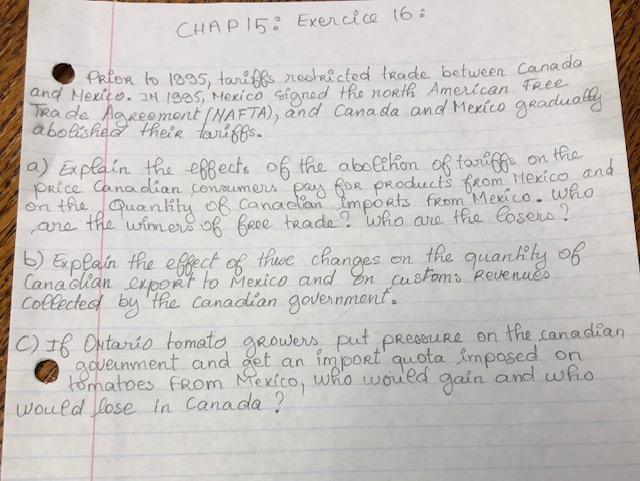 CHAP 15: Exercice 16:
PRIOR to 1995, tariffs restricted trade between Canada
and Mexico. IN 1995, Mexico signed the north American FREE
TRade Agreement (NAFTA), and Canada and Mexico gradually
abolished their tariffs.
a) Explain the effects of the abolition of tariffs on the
price Canadian consumers pay for products from Mexico and
on the Quantity of Canadian imports from Mexico. Who
are the winners of free trade? Who are the losers?
b) Explain the effect of these changes on the quantity of
Canadian export to Mexico and on customs Revenues
collected by the Canadian government.
C) If Ontario tomato growers put pressure on the canadian
government and get an import quota imposed on
tomatoes FROM Mexico, who would gain and who
would lose in Canada?